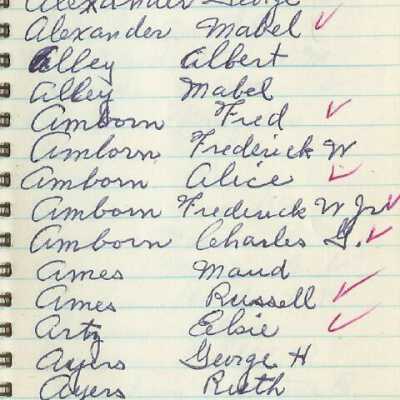 Alexander George
Alexander Mabel
Alley Albert
Alley Mabel
Amborn Fred
Amborn Frederick W
Amborn Alice
Amborn Frederick W Jr
Amborn Charles G.
Ames Maud
Ames Russell
Artz Elsie
Ayers George H
Ayers Ruth